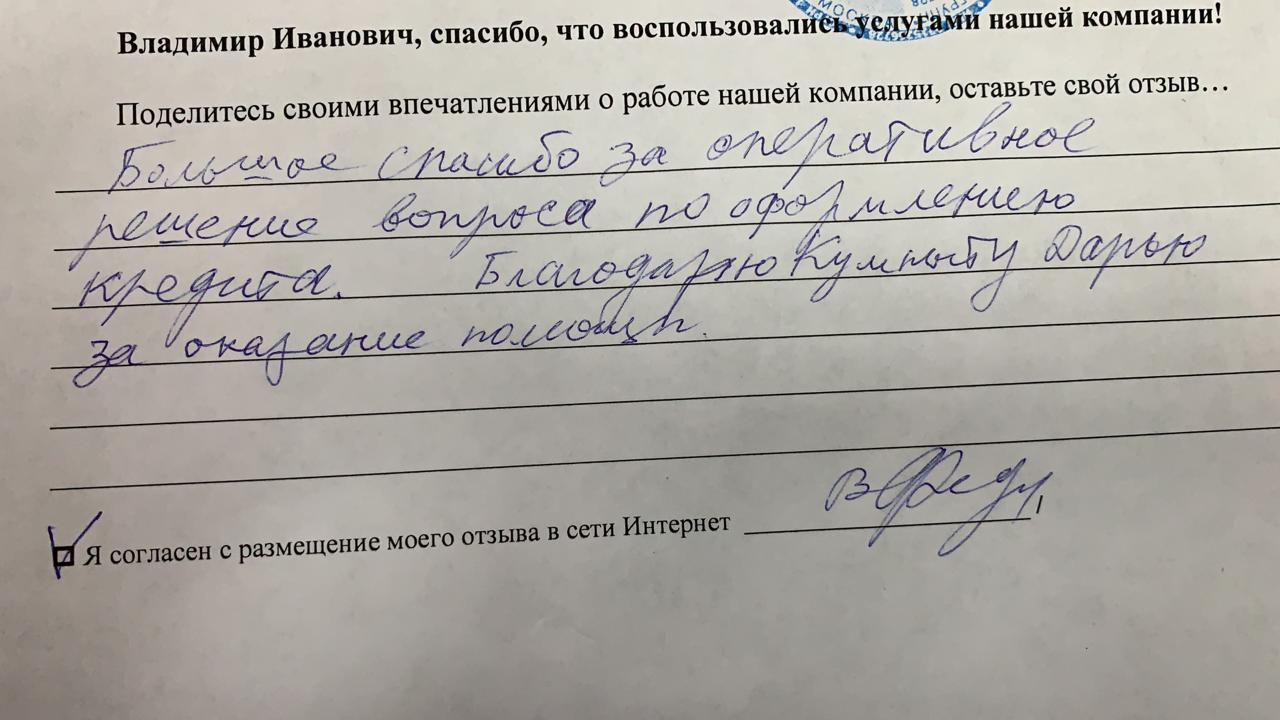 МОСК
ГРУПП
Владимир Иванович, спасибо, что воспользовались услугами нашей компании!
Поделитесь своими впечатлениями о работе нашей компании, оставьте свой отзыв…
Большое спасибо за оперативное
решение вопроса по оформлению
кредита. Благодарю Дарью
за оказание помощи.
Я согласен с размещение моего отзыва в сети Интернет